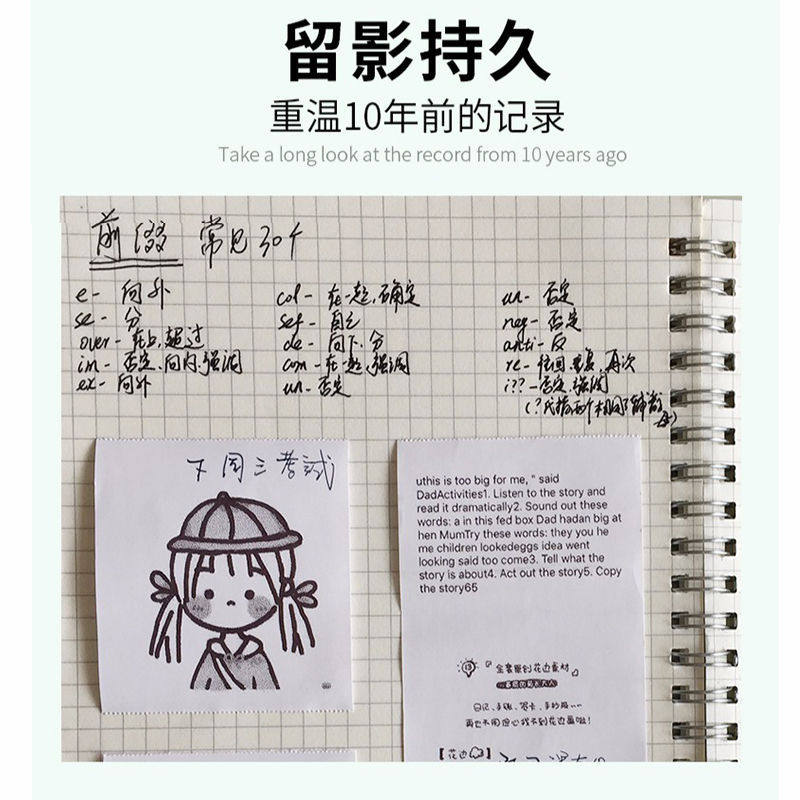 留影持久
重温10年前的记录
Take a long look at the record from 10 years ago
前缀 常见30个
e- 向外
se- 分
over- 在上,超过
im- 否定,向内,强调
ex- 向外
col- 在一起,确定
sef- 自己
de- 向下,分
com- 在一起,强调
un- 否定
un- 否定
neg- 否定
anti- 反
re- 往回,重复,再次
i??- 否定,强调
(?代指两个相同了解
下周三考試
uthis is too big for me, " said
DadActivities1. Listen to the story and
read it dramatically2. Sound out these
words: a in this fed box Dad hadan big at
hen MumTry these words: they you he
me children lookedeggs idea went
looking said too come3. Tell what the
story is about4. Act out the story5. Copy
the story65
13 『全套原创花边素材』
日记、手账、贺卡、手抄报~~
再也不用担心找不到花边画啦!
【花边